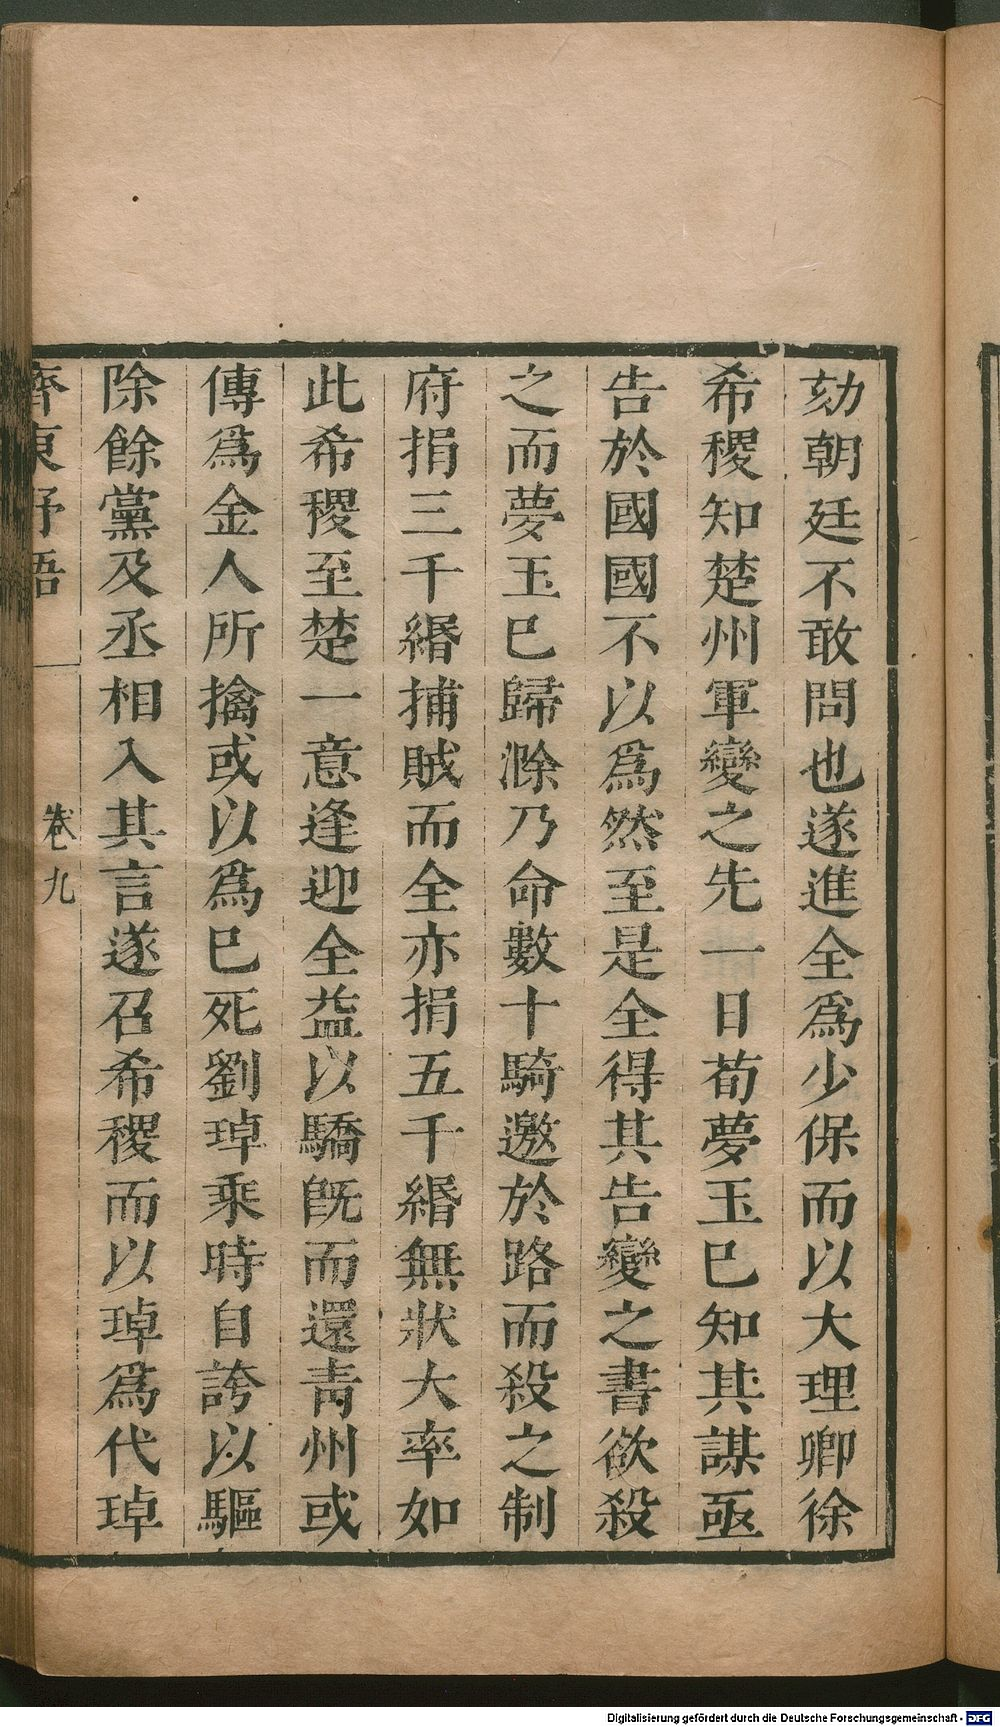 劾朝廷不敢問也遂進全爲少保而以大理卿徐
希稷知楚州軍變之先一日荀夢玉巳知其謀亟
告於國國不以爲然至是全得其告變之書欲殺
之而夢玉巳歸滁乃命數十騎邀於路而殺之制
府捐三千緡捕賊而全亦捐五千緡無狀大率如
此希稷至楚一意逢迎全益以驕旣而還靑州或
傳爲金人所擒或以爲巳死劉琸乘時自誇以驅
除餘黨及丞相入其言遂召希稷而以琸爲代琸
齊東野語 卷九
Digitalisierung gefördert durch die Deutsche Forschungsgemeinschaft - DFG